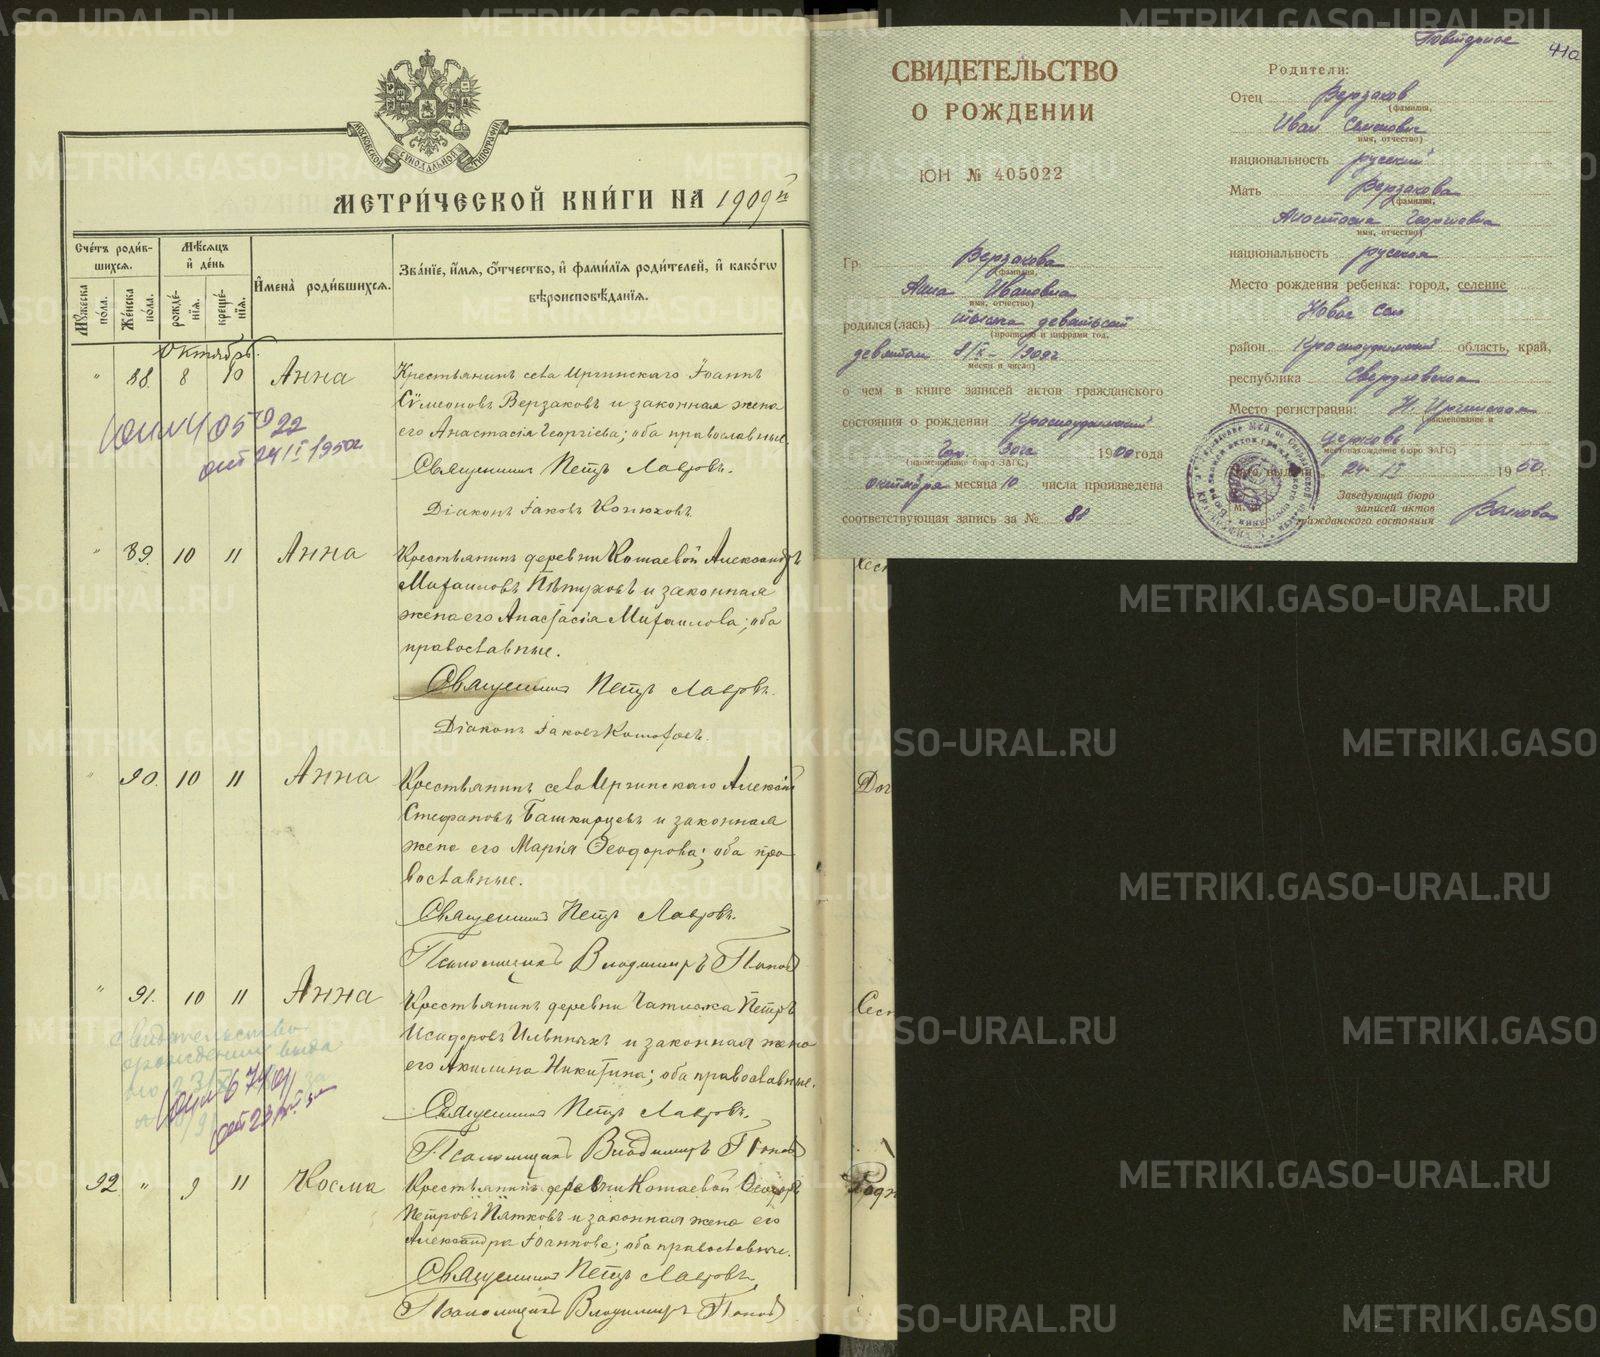 МОСКОВСКОЙ СѴНОДАЛЬНОЙ ТИПОГРАФІИ
МЕТРИ́ЧЕСКОЙ КНИ́ГИ НА 1909й
Сче́тъ роди́в-
шихся.
Мѣ́сяцъ
и҆ де́нь
И҆мена̀ роди́вшихся.
Зва́нїе, и҆́мя, ѻ҆́тчество, и҆ фами́лїя роди́телей, и҆ како́гѡ
вѣроисповѣ́данїя.
Мꙋ́жеска
по́ла.
Же́нска
по́ла.
рожде́-
нїя.
креще́-
нїя.
Октябрь.
" 88. 8 10 Анна
Крестьянинъ села Иргинскаго Іоаннъ
Сѵмеоновъ Верзаковъ и законная жена
его Анастасія Георгіева; оба православные.
Священникъ Петръ Лавровъ.
Діаконъ Іаковъ
ЮН № 405022
от 24 II 1950г
" 89. 10 11 Анна
Крестьянинъ деревни Кошаевой Александръ
Михаиловъ Пѣтуховъ и законная
жена его Анастасія Михаилова; оба
православные.
Священникъ Петръ Лавровъ.
Діаконъ Іаковъ
" 90. 10 11 Анна
Крестьянинъ села Иргинскаго Алексій
Стефановъ Башкирцевъ и законная
жена его Марія Ѳеодорова; оба пра-
вославные.
Священникъ Петръ Лавровъ.
Псаломщикъ Владимиръ Поповъ
" 91. 10 11 Анна
Крестьянинъ деревни Чатлыка Петръ
Исидоровъ Ильиныхъ и законная жена
его Акилина Никитина; оба православные.
Священникъ Петръ Лавровъ.
Псаломщикъ Владимиръ Поповъ
свидетельство
о рождении выда
92 " 9 11 Косма
Крестьянинъ деревни Кошаевой Ѳеодоръ
Петровъ Пятковъ и законная жена его
Александра Іоаннова; оба православные.
Священникъ Петръ Лавровъ.
Псаломщикъ Владимиръ Поповъ
Повторное
СВИДЕТЕЛЬСТВО
О РОЖДЕНИИ
ЮН № 405022
Гр. Верзакова
(фамилия,
Анна Ивановна
имя, отчество)
родился(лась) тысяча девятьсот
(прописью и цифрами год,
девятом 8/X - 1909г
месяц и число)
о чем в книге записей актов гражданского
состояния о рождении Красноуфимский
Гор. Загс 1900 года
(наименование бюро ЗАГС)
октября месяца 10 числа произведена
соответствующая запись за № 88
Родители:
Отец Верзаков
(фамилия,
Иван Семенович
имя, отчество)
национальность русский
Мать Верзакова
(фамилия,
Анастасия Георгиевна
имя, отчество)
национальность русская
Место рождения ребенка: город, селение
Новое Село
район Красноуфимский область, край,
республика Свердловская
Место регистрации: Н. Иргинская
(наименование и
церковь
местонахождение бюро ЗАГС)
24 II 1950 г.
М. П.
Заведующий бюро
записей актов
гражданского состояния
METRIKI.GASO-URAL.RU